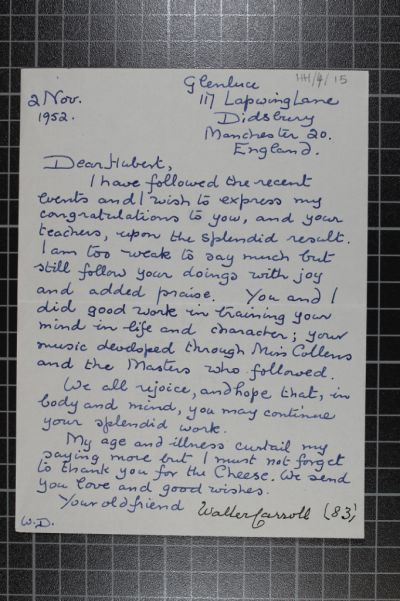 HH/4/15
Glenluce
117 Lapwing Lane
Didsbury
Manchester 20.
England.
2 Nov.
1952.
Dear Hubert,
I have followed the recent
events and I wish to express my
congratulations to you, and your
teachers, upon the splendid result.
I am too weak to say much but
still follow your doings with joy
and added praise. You and I
did good work in training your
mind in life and character; your
music developed through Miss Collens
and the Masters who followed.
We all rejoice, and hope that, in
body and mind, you may continue
your splendid work.
My age and illness curtail my
saying more but I must not forget
to thank you for the Cheese. We send
you love and good wishes.
Your old friend Walter Carroll (83)
W.D.